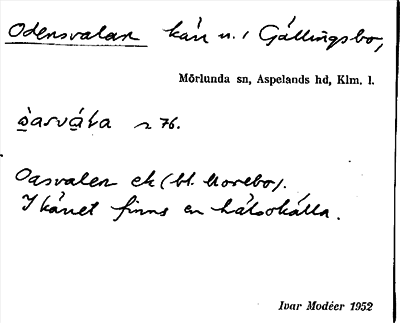 Odensvalan kärr n. i Gällingsbo,
Mörlunda sn, Aspelands hd, Klm. l.
s. 76.
Oasvalen ek (bl. Morebo).
I kärret finns en hälsokälla.
Ivar Modéer 1952